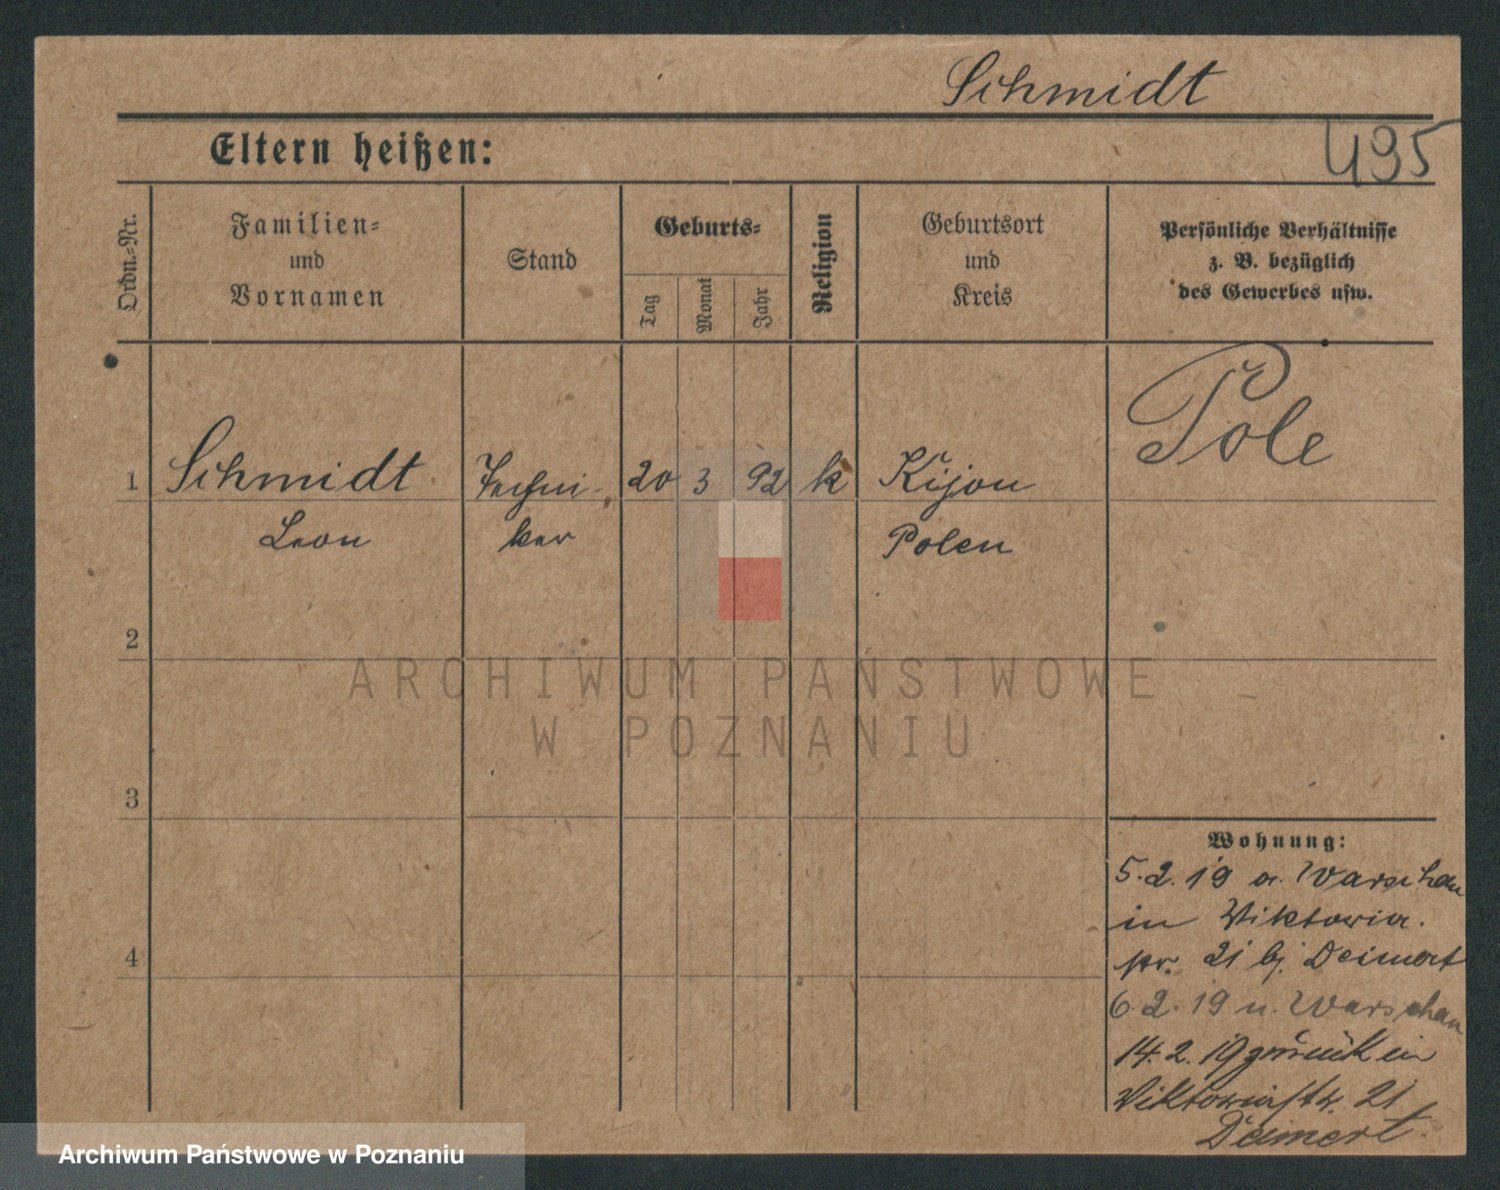 Schmidt
495
Eltern heißen:
Ordn.-Nr.
Familien-
und
Vornamen
Stand
Geburts-
Tag
Monat
Jahr
Religion
Geburtsort
und
Kreis
Persönliche Verhältnisse
z. B. bezüglich
des Gewerbes usw.
Pole
1 Schmidt Techni- 20 3 92 k Kijon
Leon ker Polen
2
ARCHIWUM PAŃSTWOWE
W POZNANIU
3
Wohnung:
5.2.19 a. Warschau
in Viktoria.
21 bj.
4
6.2.19 n. Warschau
14.2.19 zurück in
Viktoriastr. 21
Archiwum Państwowe w Poznaniu